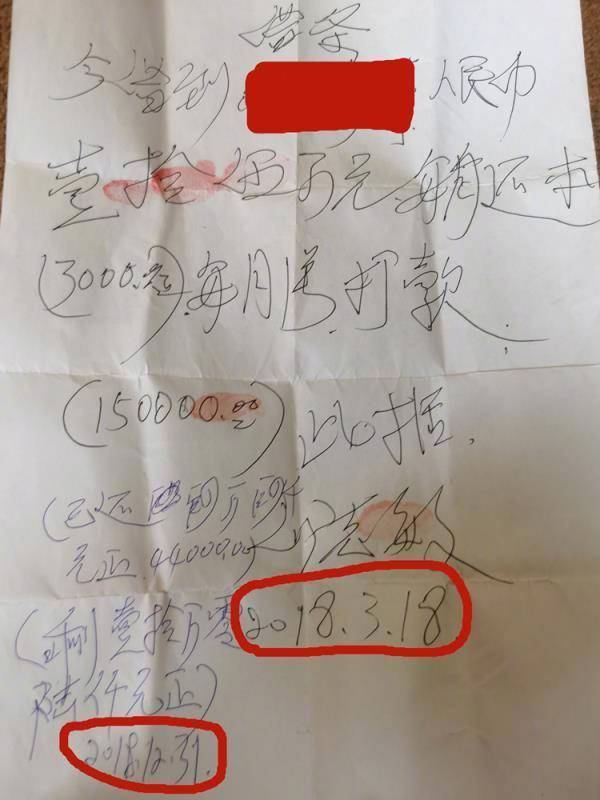 借条
今借到 人民币
壹拾伍万元 每月还本
(3000.00) 每月 打款.
(150000.00) 此据.
(已还肆万肆仟
元正.44000.00
2018.3.18
(剩壹拾万零
陆仟元正)
2018.12.31.